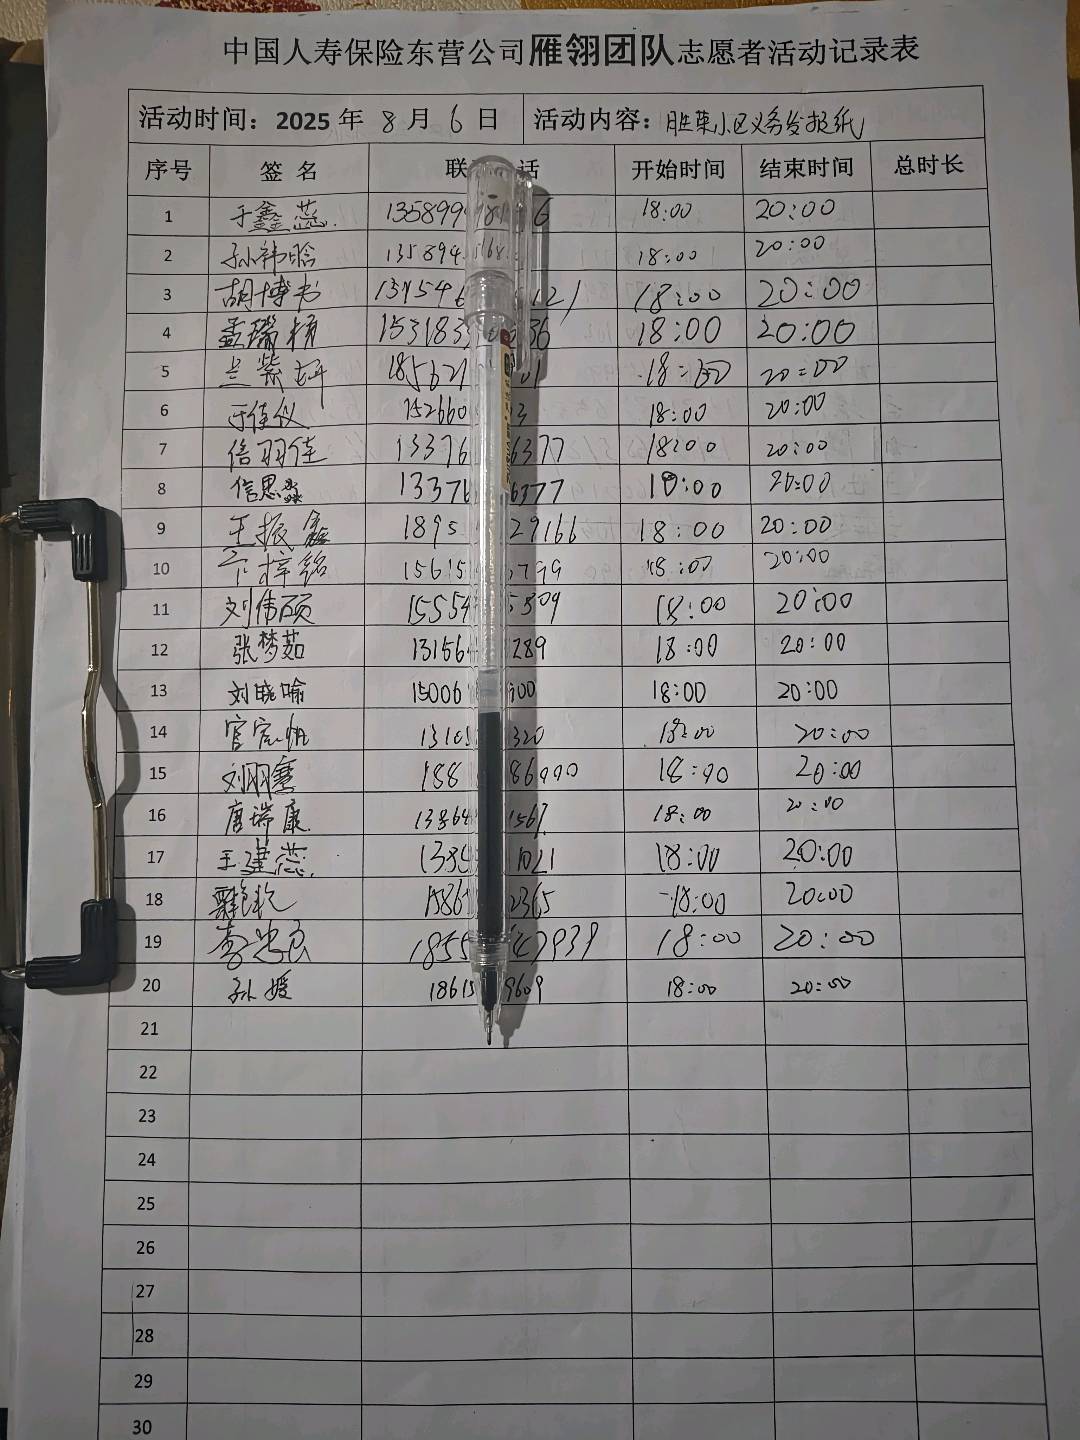 中国人寿保险东营公司雁翎团队志愿者活动记录表
活动时间：2025 年 8 月 6 日 活动内容：胜菜小区义务发报纸
序号 签 名 联 话 开始时间 结束时间 总时长
1 于鑫蕊 135899 6 18:00 20:00
2 135894 18:00 20:00
3 胡博书 137546 121 18:00 20:00
4 孟瑞 153183 36 18:00 20:00
5 兰紫 185621 01 18:00 20:00
6 于佳仪 152660 3 18:00 20:00
7 信羽佳 13376 6377 18:00 20:00
8 信思淼 13376 6377 18:00 20:00
9 王振鑫 1895 29166 18:00 20:00
10 梓铭 15615 3799 18:00 20:00
11 刘伟硕 15554 5309 18:00 20:00
12 张梦茹 13156 289 18:00 20:00
13 刘晓喻 15006 900 18:00 20:00
14 官宏帆 13105 320 18:00 20:00
15 刘 188 86990 18:00 20:00
16 唐瑞康 13864 1567 18:00 20:00
17 王建蕊 1386 1021 18:00 20:00
18 1586 2365 18:00 20:00
19 李 1855 47939 18:00 20:00
20 孙媛 18615 9609 18:00 20:00
21
22
23
24
25
26
27
28
29
30